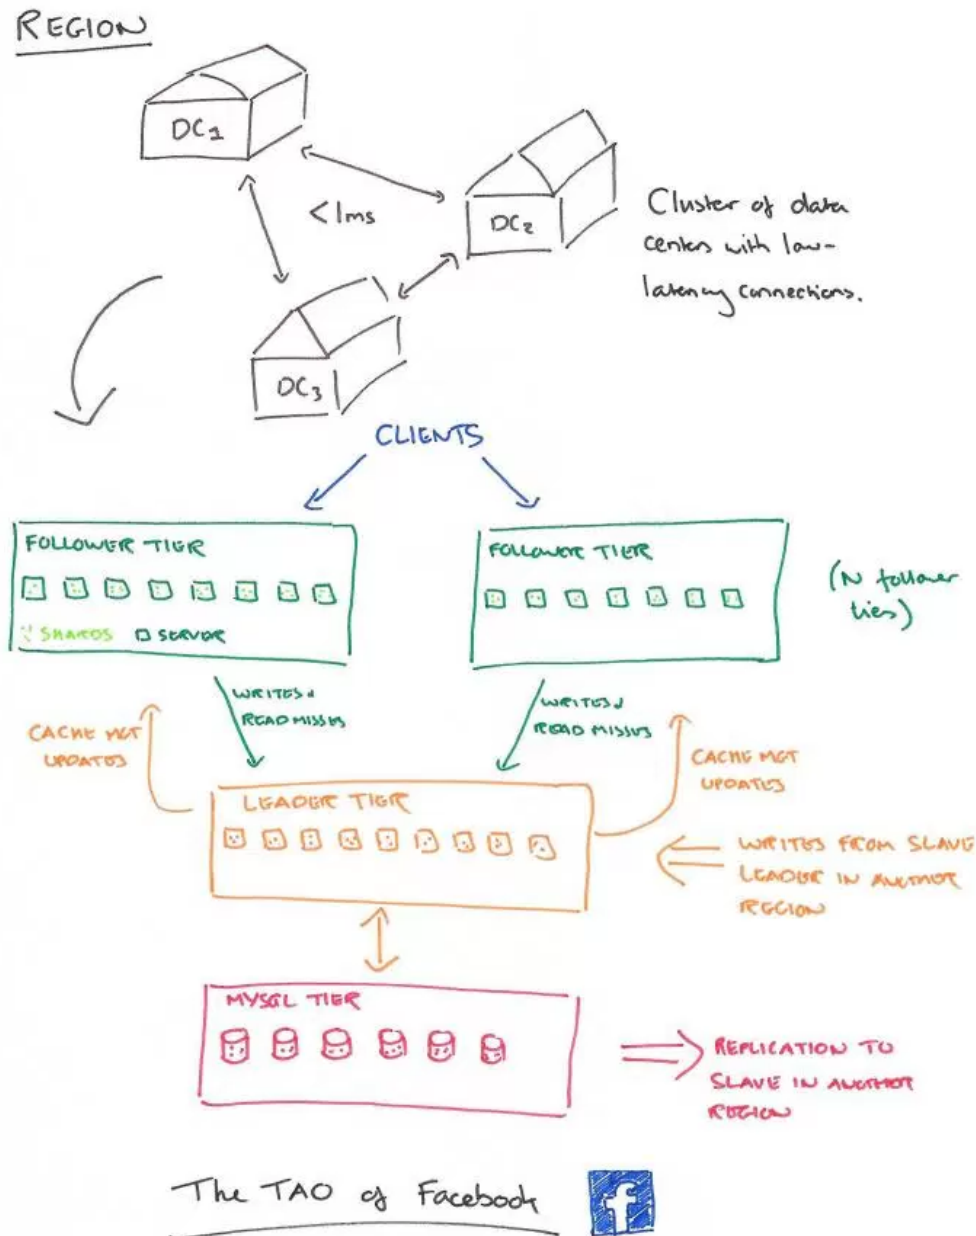 REGION
DC1
DC2
<1ms
DC3
Cluster of data
centers with low-
latency connections.
CLIENTS
FOLLOWER TIER
SHARDS SERVER
FOLLOWER TIER
(N follower
tiers)
WRITES &
READ MISSES
WRITES &
READ MISSES
CACHE MGT
UPDATES
CACHE MGT
UPDATES
LEADER TIER
WRITES FROM SLAVE
LEADER IN ANOTHER
REGION
MYSQL TIER
REPLICATION TO
SLAVE IN ANOTHER
REGION
The TAO of Facebook
f